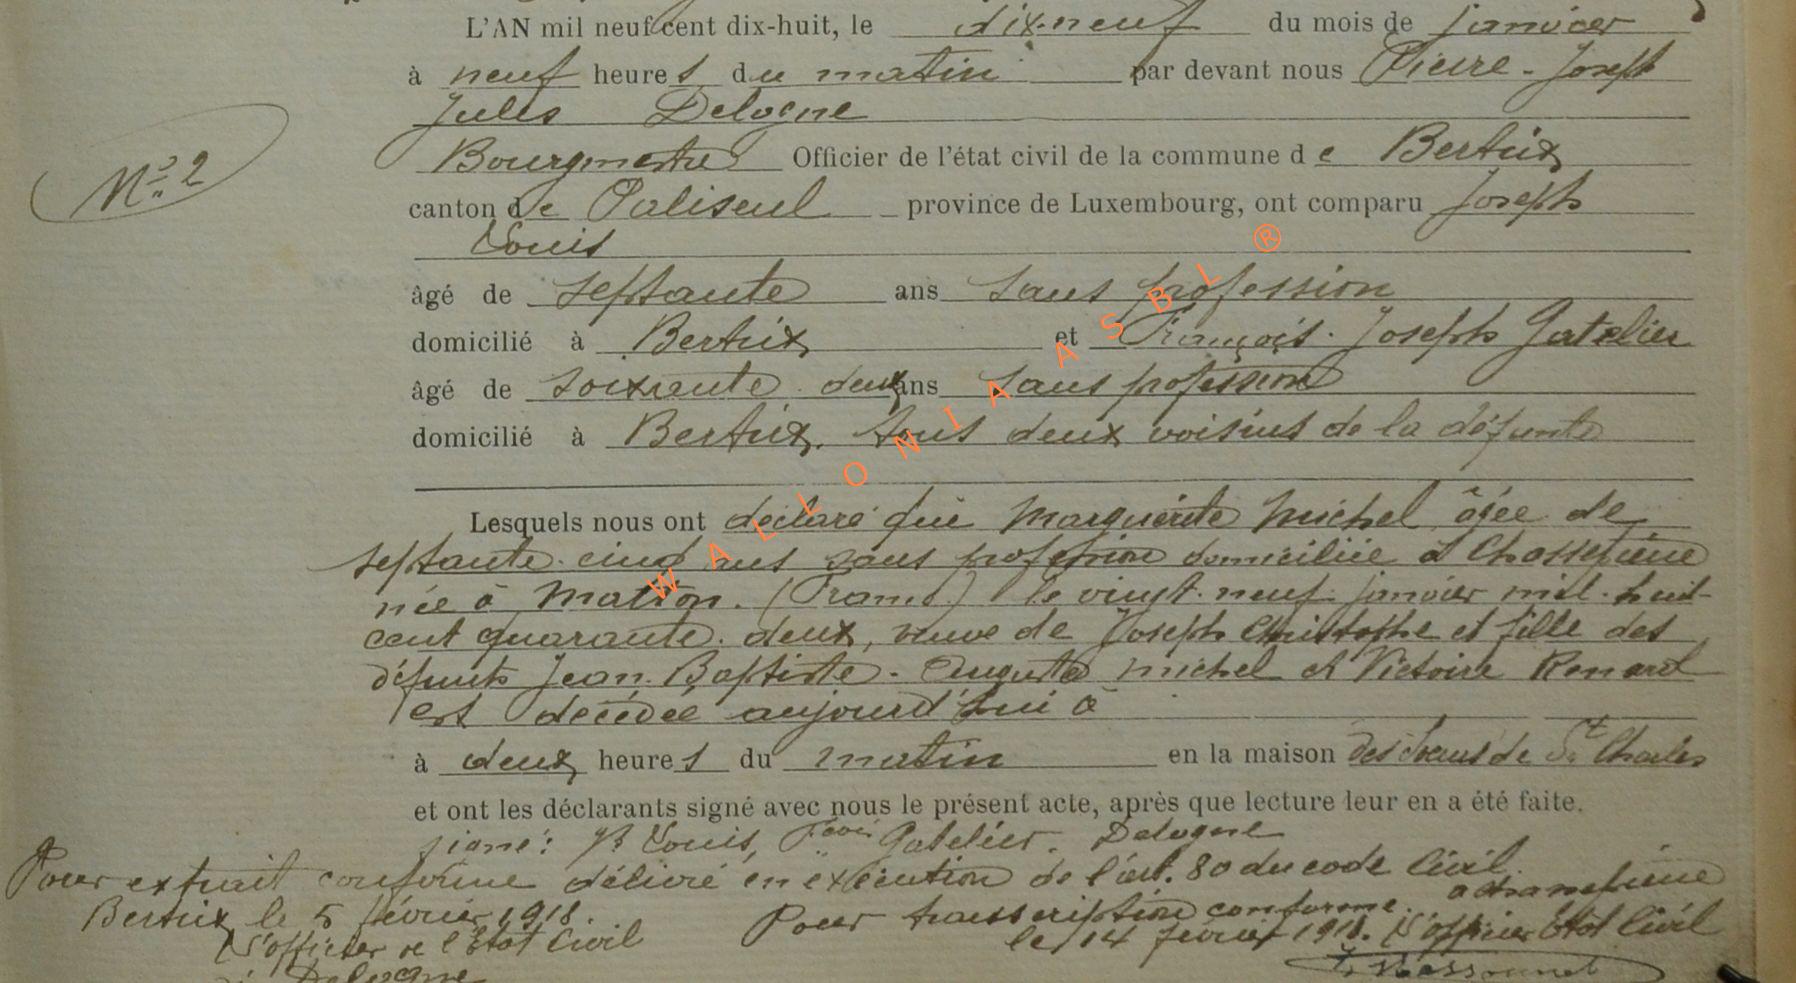 L'AN mil neuf cent dix-huit, le dix-neuf du mois de janvier
à neuf heures du matin par devant nous Pierre-Joseph
Jules Delogne
Bourgmestre Officier de l'état civil de la commune de Bertrix
N° 2
canton de Paliseul province de Luxembourg, ont comparu Joseph
Louis
âgé de septante ans sans profession
domicilié à Bertrix et François-Joseph Gatelier
âgé de soixante-deux ans sans profession
domicilié à Bertrix, tous deux voisins de la défunte
Lesquels nous ont déclaré que Marguerite Michel âgée de
septante-cinq ans sans profession domiciliée à Chassepierre
née à Matton. (France) le vingt-neuf janvier mil-huit-
cent quarante-deux, veuve de Joseph Christophe et fille des
défunts Jean-Baptiste-Auguste Michel et Victoire Renard
est décédée aujourd'hui à
à deux heures du matin en la maison des Sœurs de St Charles
et ont les déclarants signé avec nous le présent acte, après que lecture leur en a été faite.
signé: Louis, Gatelier. Delogne
Pour extrait conforme délivré en exécution de l'art. 80 du code Civil.
Bertrix, le 5 février 1918.
L'officier de l'Etat Civil
Delogne
Pour transcription conforme. à Chassepierre
le 14 février 1918. L'officier Etat Civil
WALLONIA ASBL ®